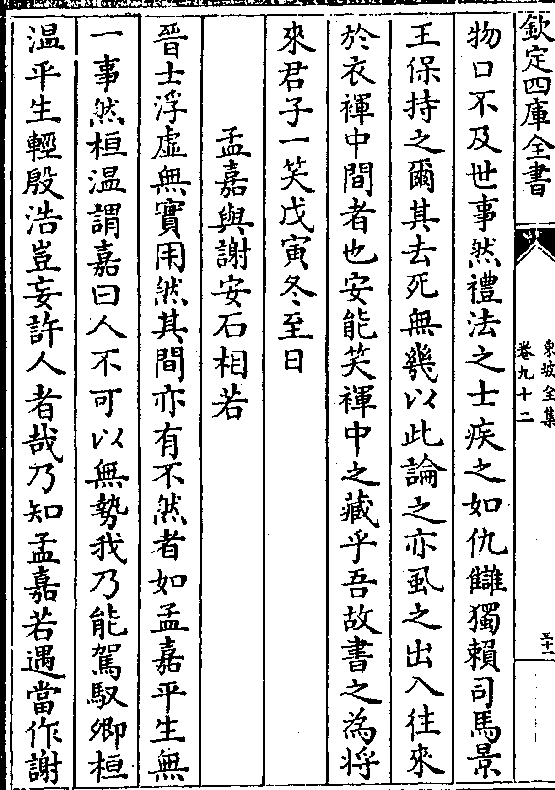 欽定四庫全書
東坡全集
卷九十二
三十一
物口不及世事然禮法之士疾之如仇讎獨賴司馬景
王保持之爾其去死無幾以此論之亦虱之出入往來
於衣褌中間者也安能笑褌中之藏乎吾故書之為將
來君子一笑戊寅冬至日
孟嘉與謝安石相若
晉士浮虛無實用然其間亦有不然者如孟嘉平生無
一事然桓温謂嘉曰人不可以無勢我乃能駕馭卿桓
温平生輕殷浩豈妄許人者哉乃知孟嘉若遇當作謝